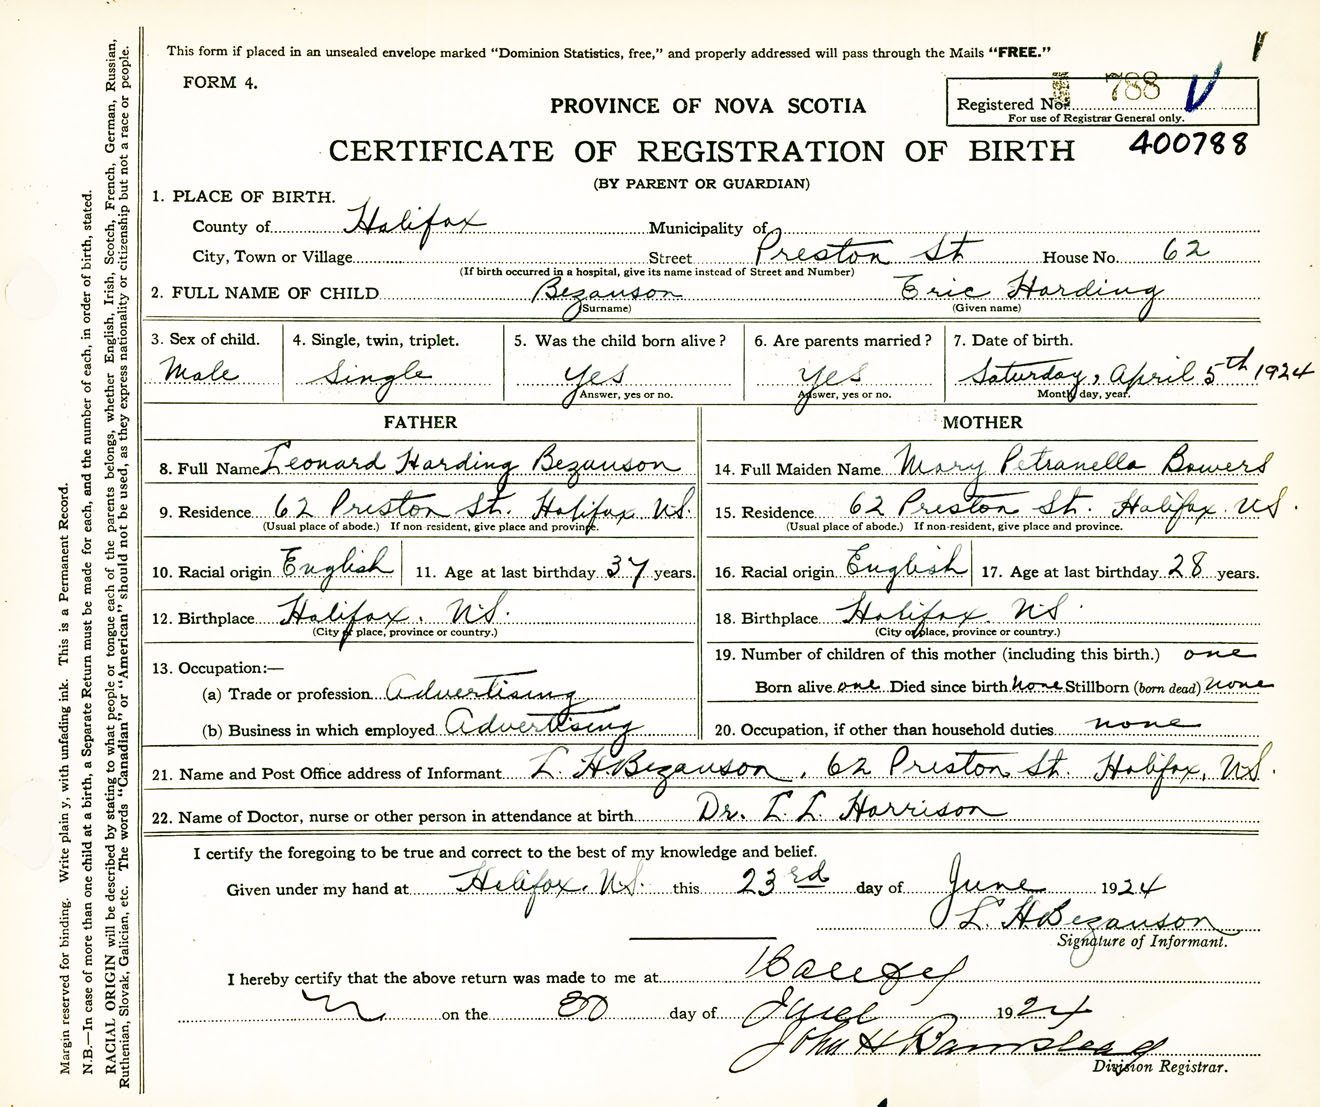 This form if placed in an unsealed envelope marked "Dominion Statistics, free," and properly addressed will pass through the Mails "FREE."
FORM 4.
Registered No. 788
For use of Registrar General only.
PROVINCE OF NOVA SCOTIA
CERTIFICATE OF REGISTRATION OF BIRTH 400788
(BY PARENT OR GUARDIAN)
1. PLACE OF BIRTH.
County of Halifax Municipality of
City, Town or Village Street Preston St House No. 62
(If birth occurred in a hospital, give its name instead of Street and Number)
2. FULL NAME OF CHILD Bezanson Eric Harding
(Surname) (Given name)
3. Sex of child. 4. Single, twin, triplet. 5. Was the child born alive? 6. Are parents married? 7. Date of birth.
Male Single Yes Yes Saturday, April 5th 1924
Answer, yes or no. Answer, yes or no. Month, day, year.
FATHER MOTHER
8. Full Name Leonard Harding Bezanson 14. Full Maiden Name Mary Petranella Bowers
9. Residence 62 Preston St. Halifax N.S. 15. Residence 62 Preston St. Halifax N.S.
(Usual place of abode.) If non-resident, give place and province. (Usual place of abode.) If non-resident, give place and province.
10. Racial origin English 11. Age at last birthday 37 years. 16. Racial origin English 17. Age at last birthday 28 years.
12. Birthplace Halifax, N.S. 18. Birthplace Halifax N.S.
(City or place, province or country.) (City or place, province or country.)
13. Occupation:— 19. Number of children of this mother (including this birth.) one
(a) Trade or profession Advertising Born alive one Died since birth None Stillborn (born dead) none
(b) Business in which employed Advertising 20. Occupation, if other than household duties none
21. Name and Post Office address of Informant L. H. Bezanson, 62 Preston St. Halifax, N.S.
22. Name of Doctor, nurse or other person in attendance at birth Dr. L. L. Harrison
I certify the foregoing to be true and correct to the best of my knowledge and belief.
Given under my hand at Halifax. N.S. this 23rd day of June 1924
L. H. Bezanson
Signature of Informant.
I hereby certify that the above return was made to me at
on the 30 day of 1924
John H
Division Registrar.
Margin reserved for binding. Write plainy, with unfading ink. This is a Permanent Record.
N.B.—In case of more than one child at a birth, a Separate Return must be made for each, and the number of each, in order of birth, stated.
RACIAL ORIGIN will be described by stating to what people or tongue each of the parents belongs, whether English, Irish, Scotch, French, German, Russian,
Ruthenian, Slovak, Galician, etc. The words "Canadian" or "American" should not be used, as they express nationality or citizenship but not a race or people.